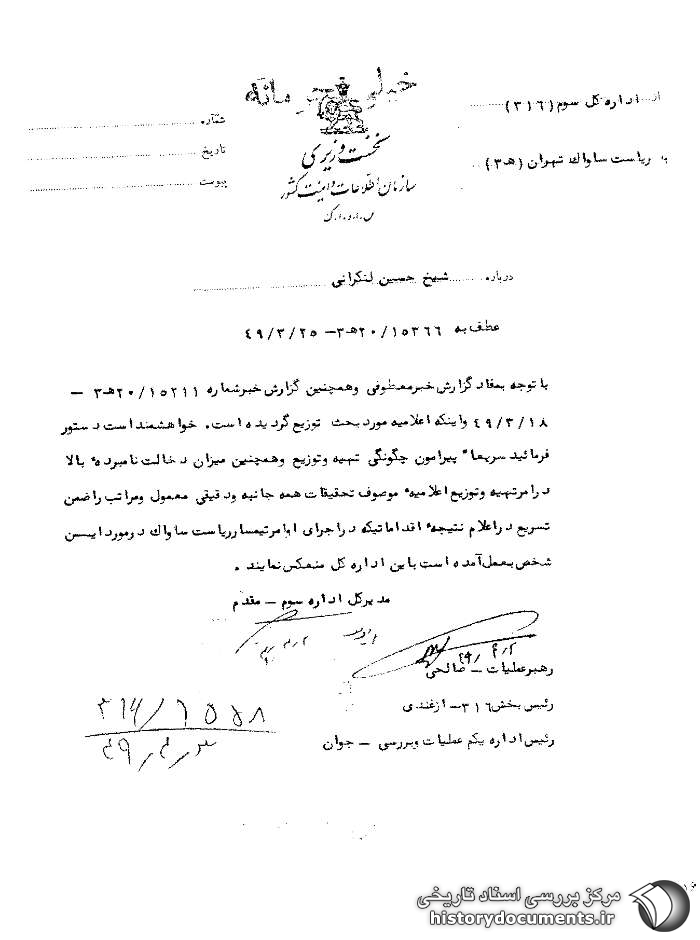 خیلی محرمانه
از اداره کل سوم (۳۱٦)
به ریاست ساواك تهران (هـ۳)
شماره
تاریخ
پیوست
نخست وزیری
سازمان اطلاعات و امنیت کشور
س.ا.و.ا.ک
درباره شیخ حسین لنکرانی
عطف به ۲۰/۱۵۳٦٦هـ۳- ٤۹/۳/۲۵
با توجه بمفاد گزارش خبر معطوفی وهمچنین گزارش خبر شماره ۲۰/۱۵۲۱۱هـ۳ -
٤۹/۳/۱۸ واینکه اعلامیه مورد بحث توزیع گردیده است. خواهشمند است دستور
فرمائید سریعاً پیرامون چگونگی تهیه وتوزیع وهمچنین میزان دخالت نامبردهٔ بالا
در امر تهیه وتوزیع اعلامیهٔ موصوف تحقیقات همه جانبه ودقیقی معمول ومراتب را ضمن
تسریع در اعلام نتیجهٔ اقداماتیکه در اجرای اوامر تیمسار ریاست ساواك در مورد ایسن
شخص بعمل آمده است باین اداره کل منعکس نمایند .
مدیرکل اداره سوم - مقدم
رهبر عملیات - صالحی
رئیس بخش ۳۱٦- ازغندی
رئیس اداره یکم عملیات وبررسی - جوان
۳۱۶/۱۵۵۸
۴۹/۴/۳
مرکز بررسی اسناد تاریخی
historydocuments.ir